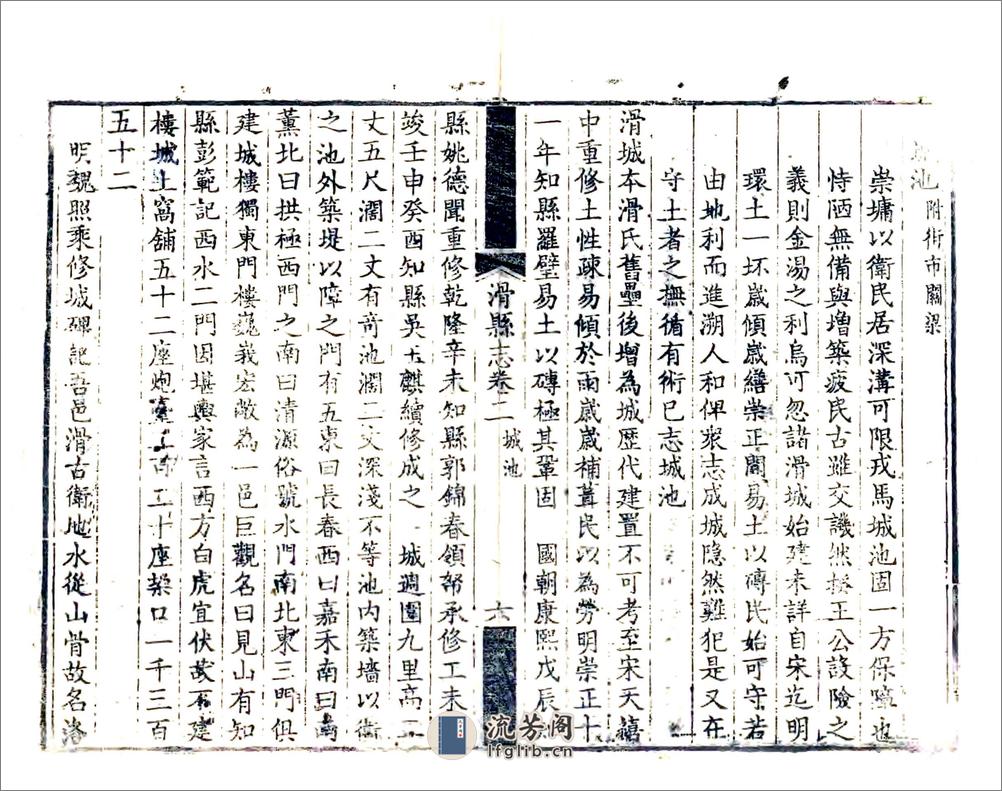 城池 附街市關梁
崇墉以衛民居深溝可限戎馬城池固一方保障也
恃陋無備與增築疲民古雖交譏然揆王公設險之
義則金湯之利烏可忽諸滑城始建未詳自宋迄明
環土一坯歲傾歲繕崇正間易土以磚民始可守若
由地利而進溯人和俾衆志成城隠然難犯是又在
守土者之撫循有術已志城池
滑城本滑氏舊壘後增為城歷代建置不可考至宋天禧
中重修土性疎易傾於雨歲歲補葺民以為勞明崇正十
一年知縣羅璧易土以磚極其鞏固 國朝康熙戊辰知
滑縣志卷二 城池 六
縣姚德聞重修乾隆辛未知縣郭錦春領帑承修工未
竣壬申癸酉知縣吳士麒續修成之 城週圍九里高二
丈五尺濶二丈有竒池濶二丈深淺不等池内築墻以衛
之池外築堤以障之門有五東曰長春西曰嘉禾南曰南
薰北曰拱極西門之南曰清源俗號水門南北東三門俱
建城樓獨東門樓巍峩宏敞為一邑巨觀名曰見山有知
縣彭範記西水二門因堪輿家言西方白虎宜伏故不建
樓城上窩舖五十二座炮臺二百二十座垜口一千三百
五十二
明魏照乘修城碑記吾邑滑古衛地水從山骨故名洛
流芳阁
lfglib.cn